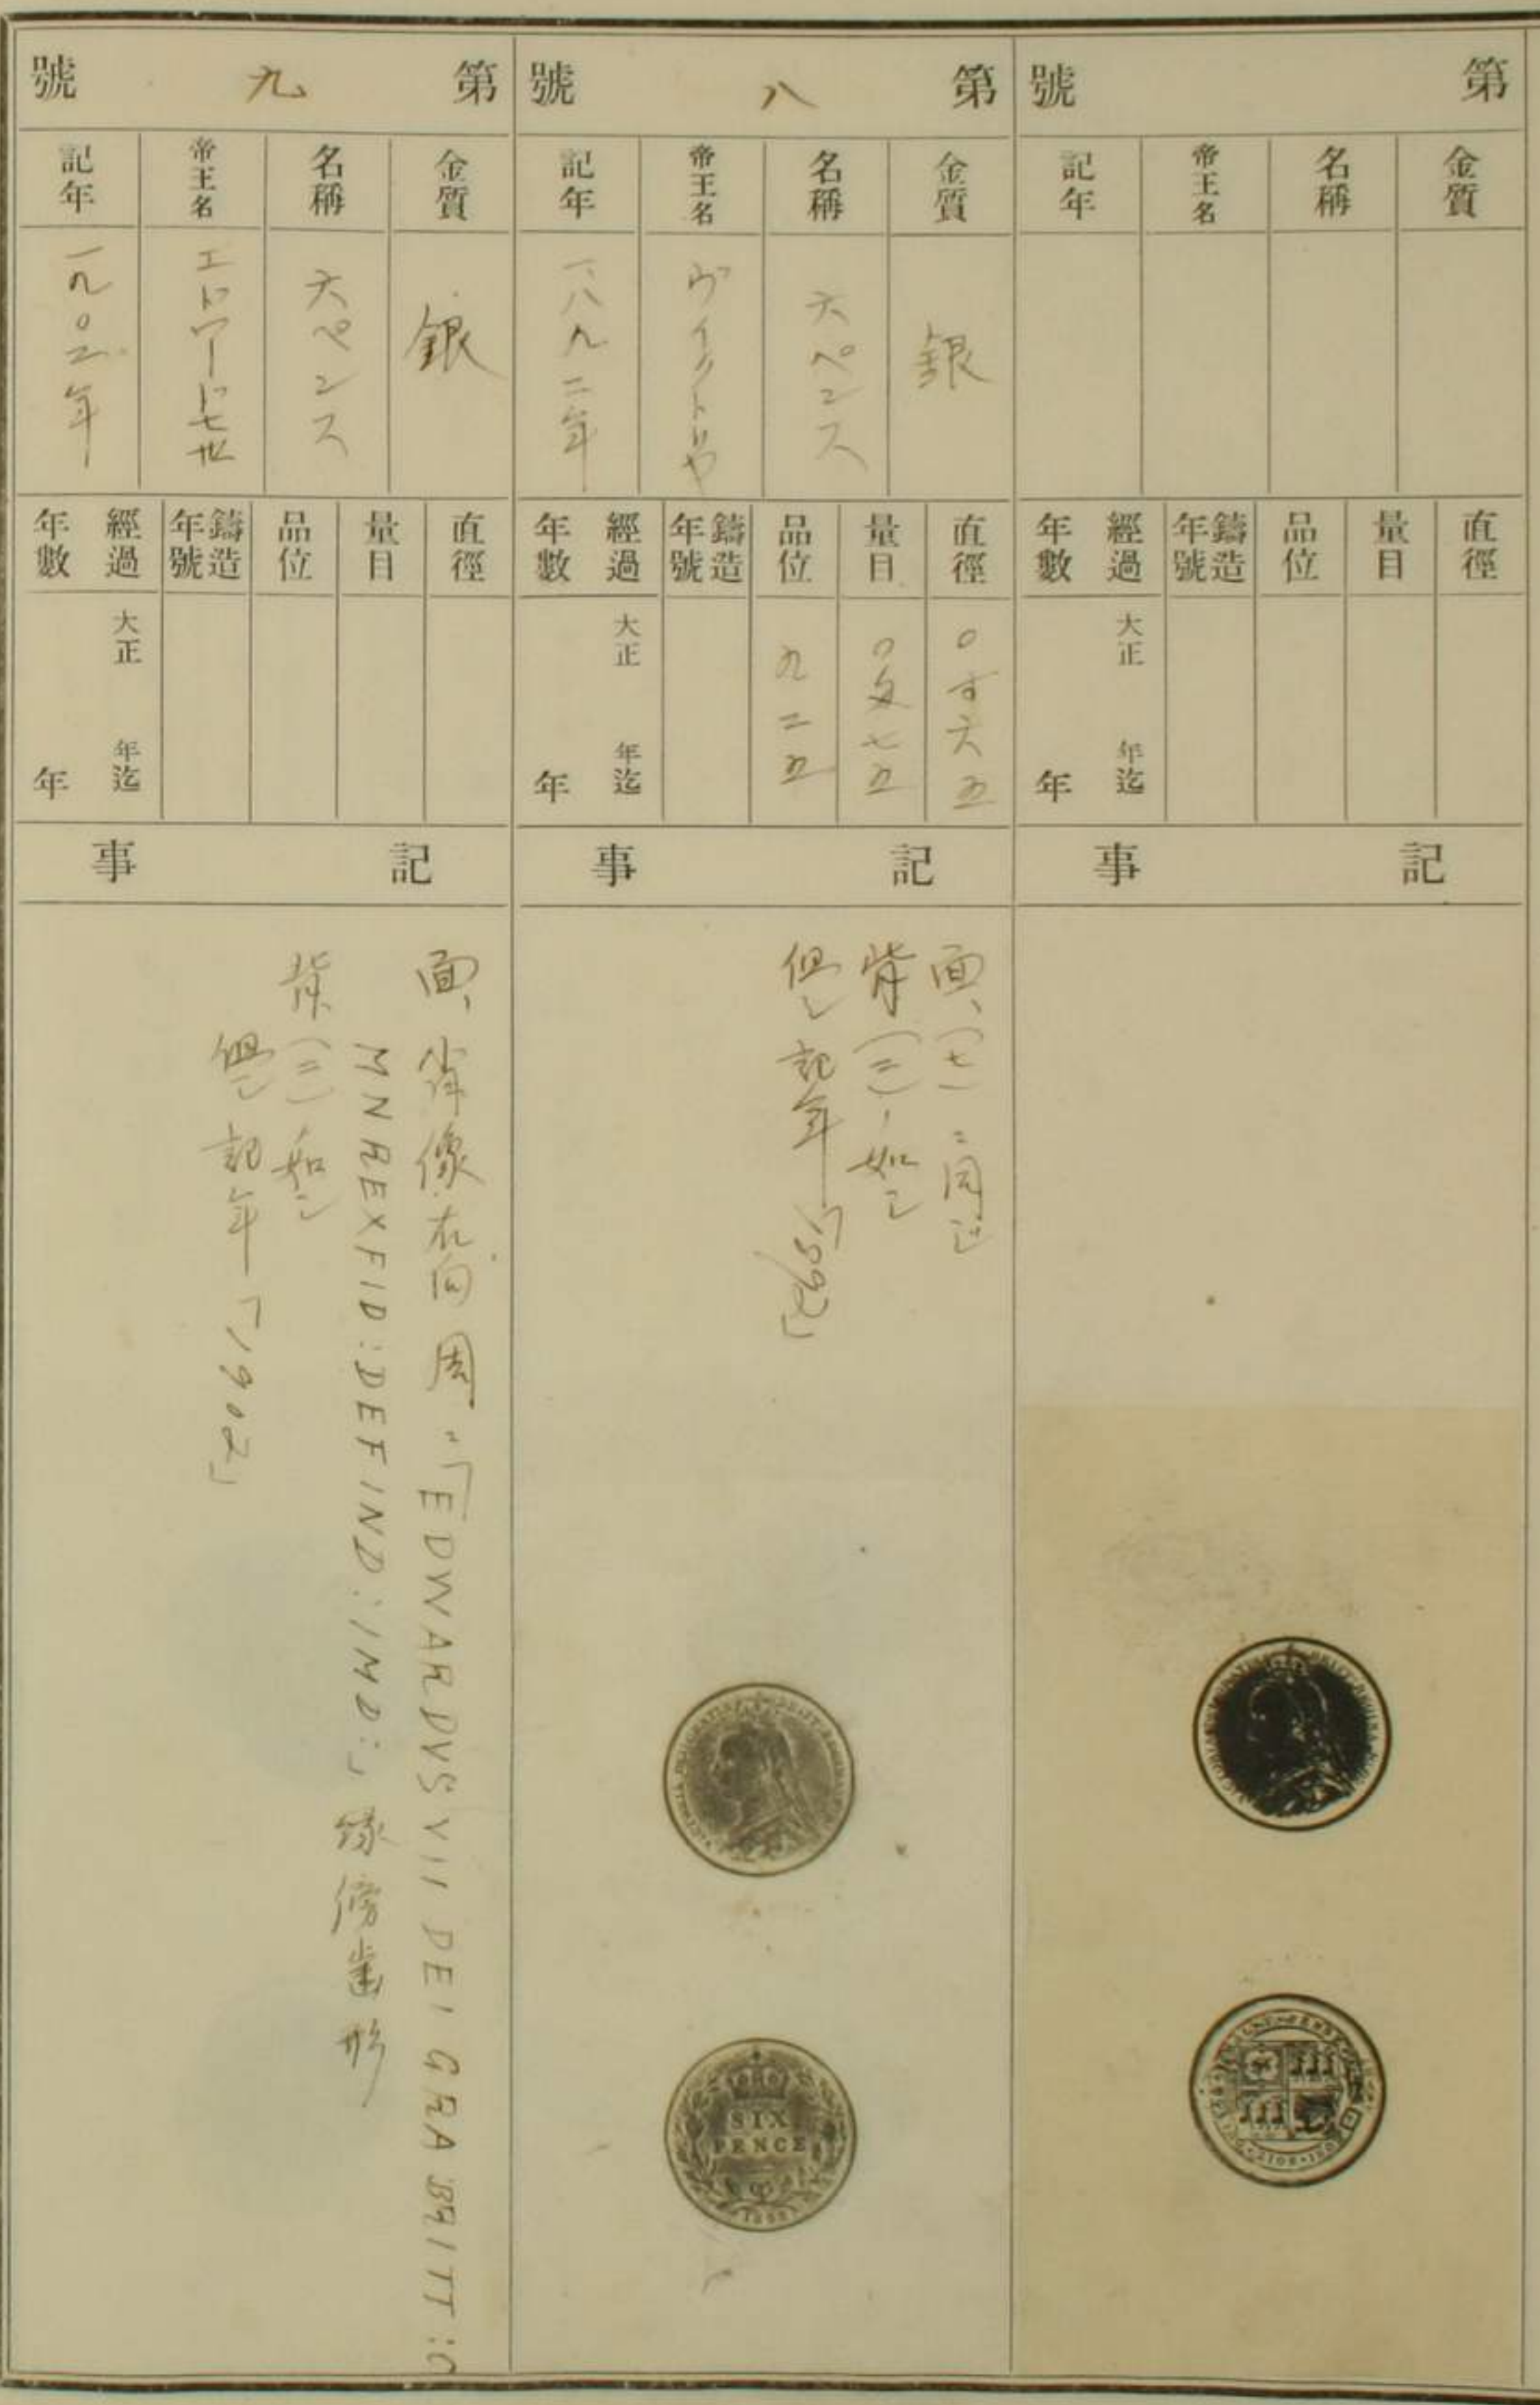 第 號
金質
名稱
帝王名
記年
直徑
量目
品位
鑄造年號
經過年數
大正 年迄
年
記 事
第 八 號
金質
名稱
帝王名
記年
銀
六ペンス
ヴィクトリヤ
一八九二年
直徑
量目
品位
鑄造年號
經過年數
〇寸六五
〇匁七五
九二五
大正 年迄
年
記 事
面、(七)ニ同ジ
背(三)ノ如シ
但シ記年「1892」
SIX
PENCE
第 九 號
金質
名稱
帝王名
記年
銀
六ペンス
エドワード七世
一九〇二年
直徑
量目
品位
鑄造年號
經過年數
大正 年迄
年
記 事
面、肖像右向周ニ「EDWARDVS VII DEI GRA BRITT:O
MNREXFID:DEFIND:IMD:」緣傍齒形
背(三)ノ如シ
但シ記年「1902」